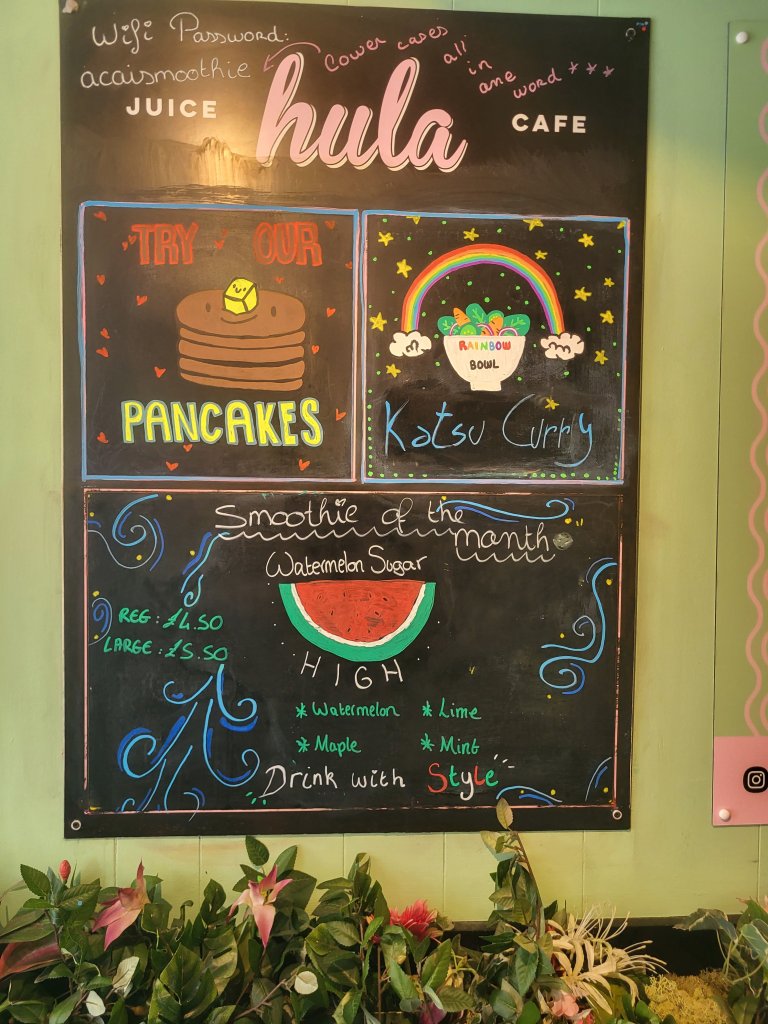 Wifi Password:
acaismoothie
(lower cases
all
in
one
word ***
JUICE
hula
CAFE
TRY OUR
PANCAKES
RAINBOW
BOWL
Katsu Curry
Smoothie of the
month
Watermelon Sugar
HIGH
REG: £4.50
LARGE: £5.50
* Watermelon
* Lime
* Maple
* Mint
Drink with Style